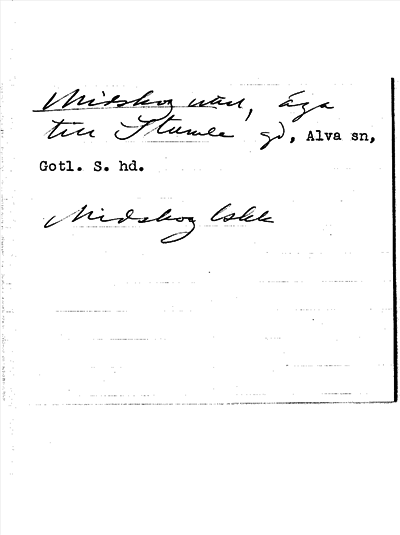 Midskog utsl, äga
till Stumle gd, Alva sn,
Gotl. S. hd.
Midskog